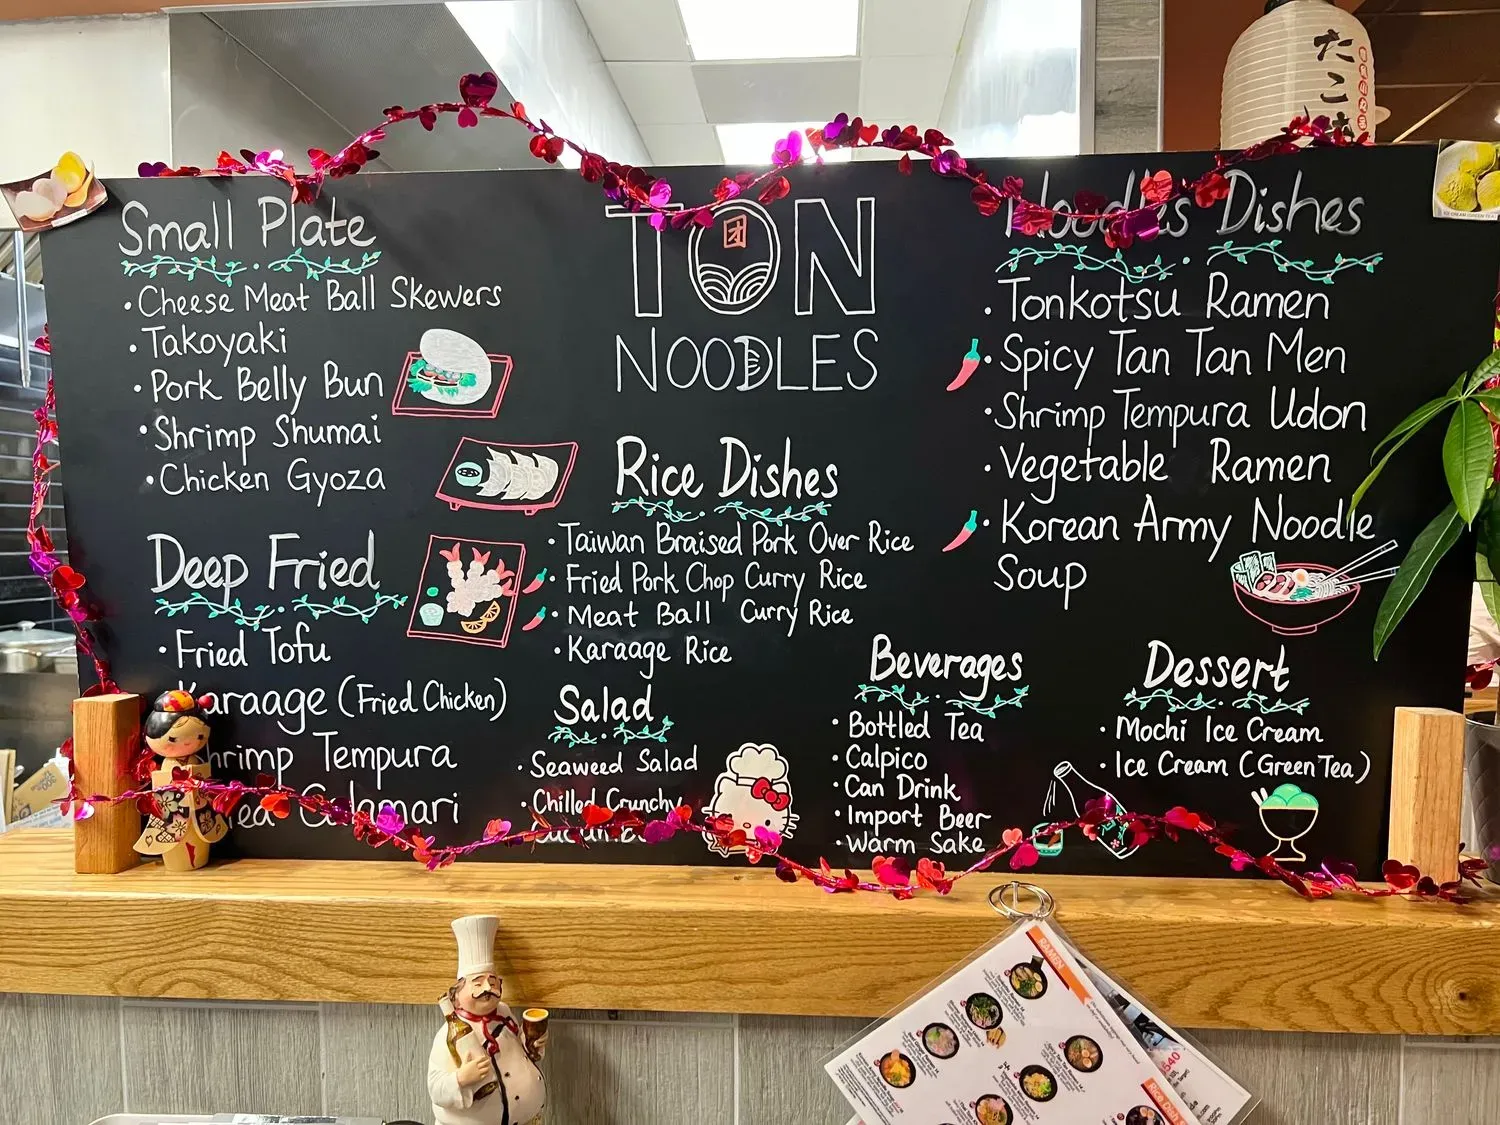 Small Plate
· Cheese Meat Ball Skewers
· Takoyaki
· Pork Belly Bun
· Shrimp Shumai
· Chicken Gyoza
Deep Fried
· Fried Tofu
Karaage (Fried Chicken)
Shrimp Tempura
Calamari
団
TON
NOODLES
Rice Dishes
· Taiwan Braised Pork Over Rice
· Fried Pork Chop Curry Rice
· Meat Ball Curry Rice
· Karaage Rice
Salad
· Seaweed Salad
· Chilled Crunchy
Noodles Dishes
· Tonkotsu Ramen
· Spicy Tan Tan Men
· Shrimp Tempura Udon
· Vegetable Ramen
· Korean Army Noodle
Soup
Beverages
· Bottled Tea
· Calpico
· Can Drink
· Import Beer
· Warm Sake
Dessert
· Mochi Ice Cream
· Ice Cream (Green Tea)
たこ
RAMEN
Rice Dish